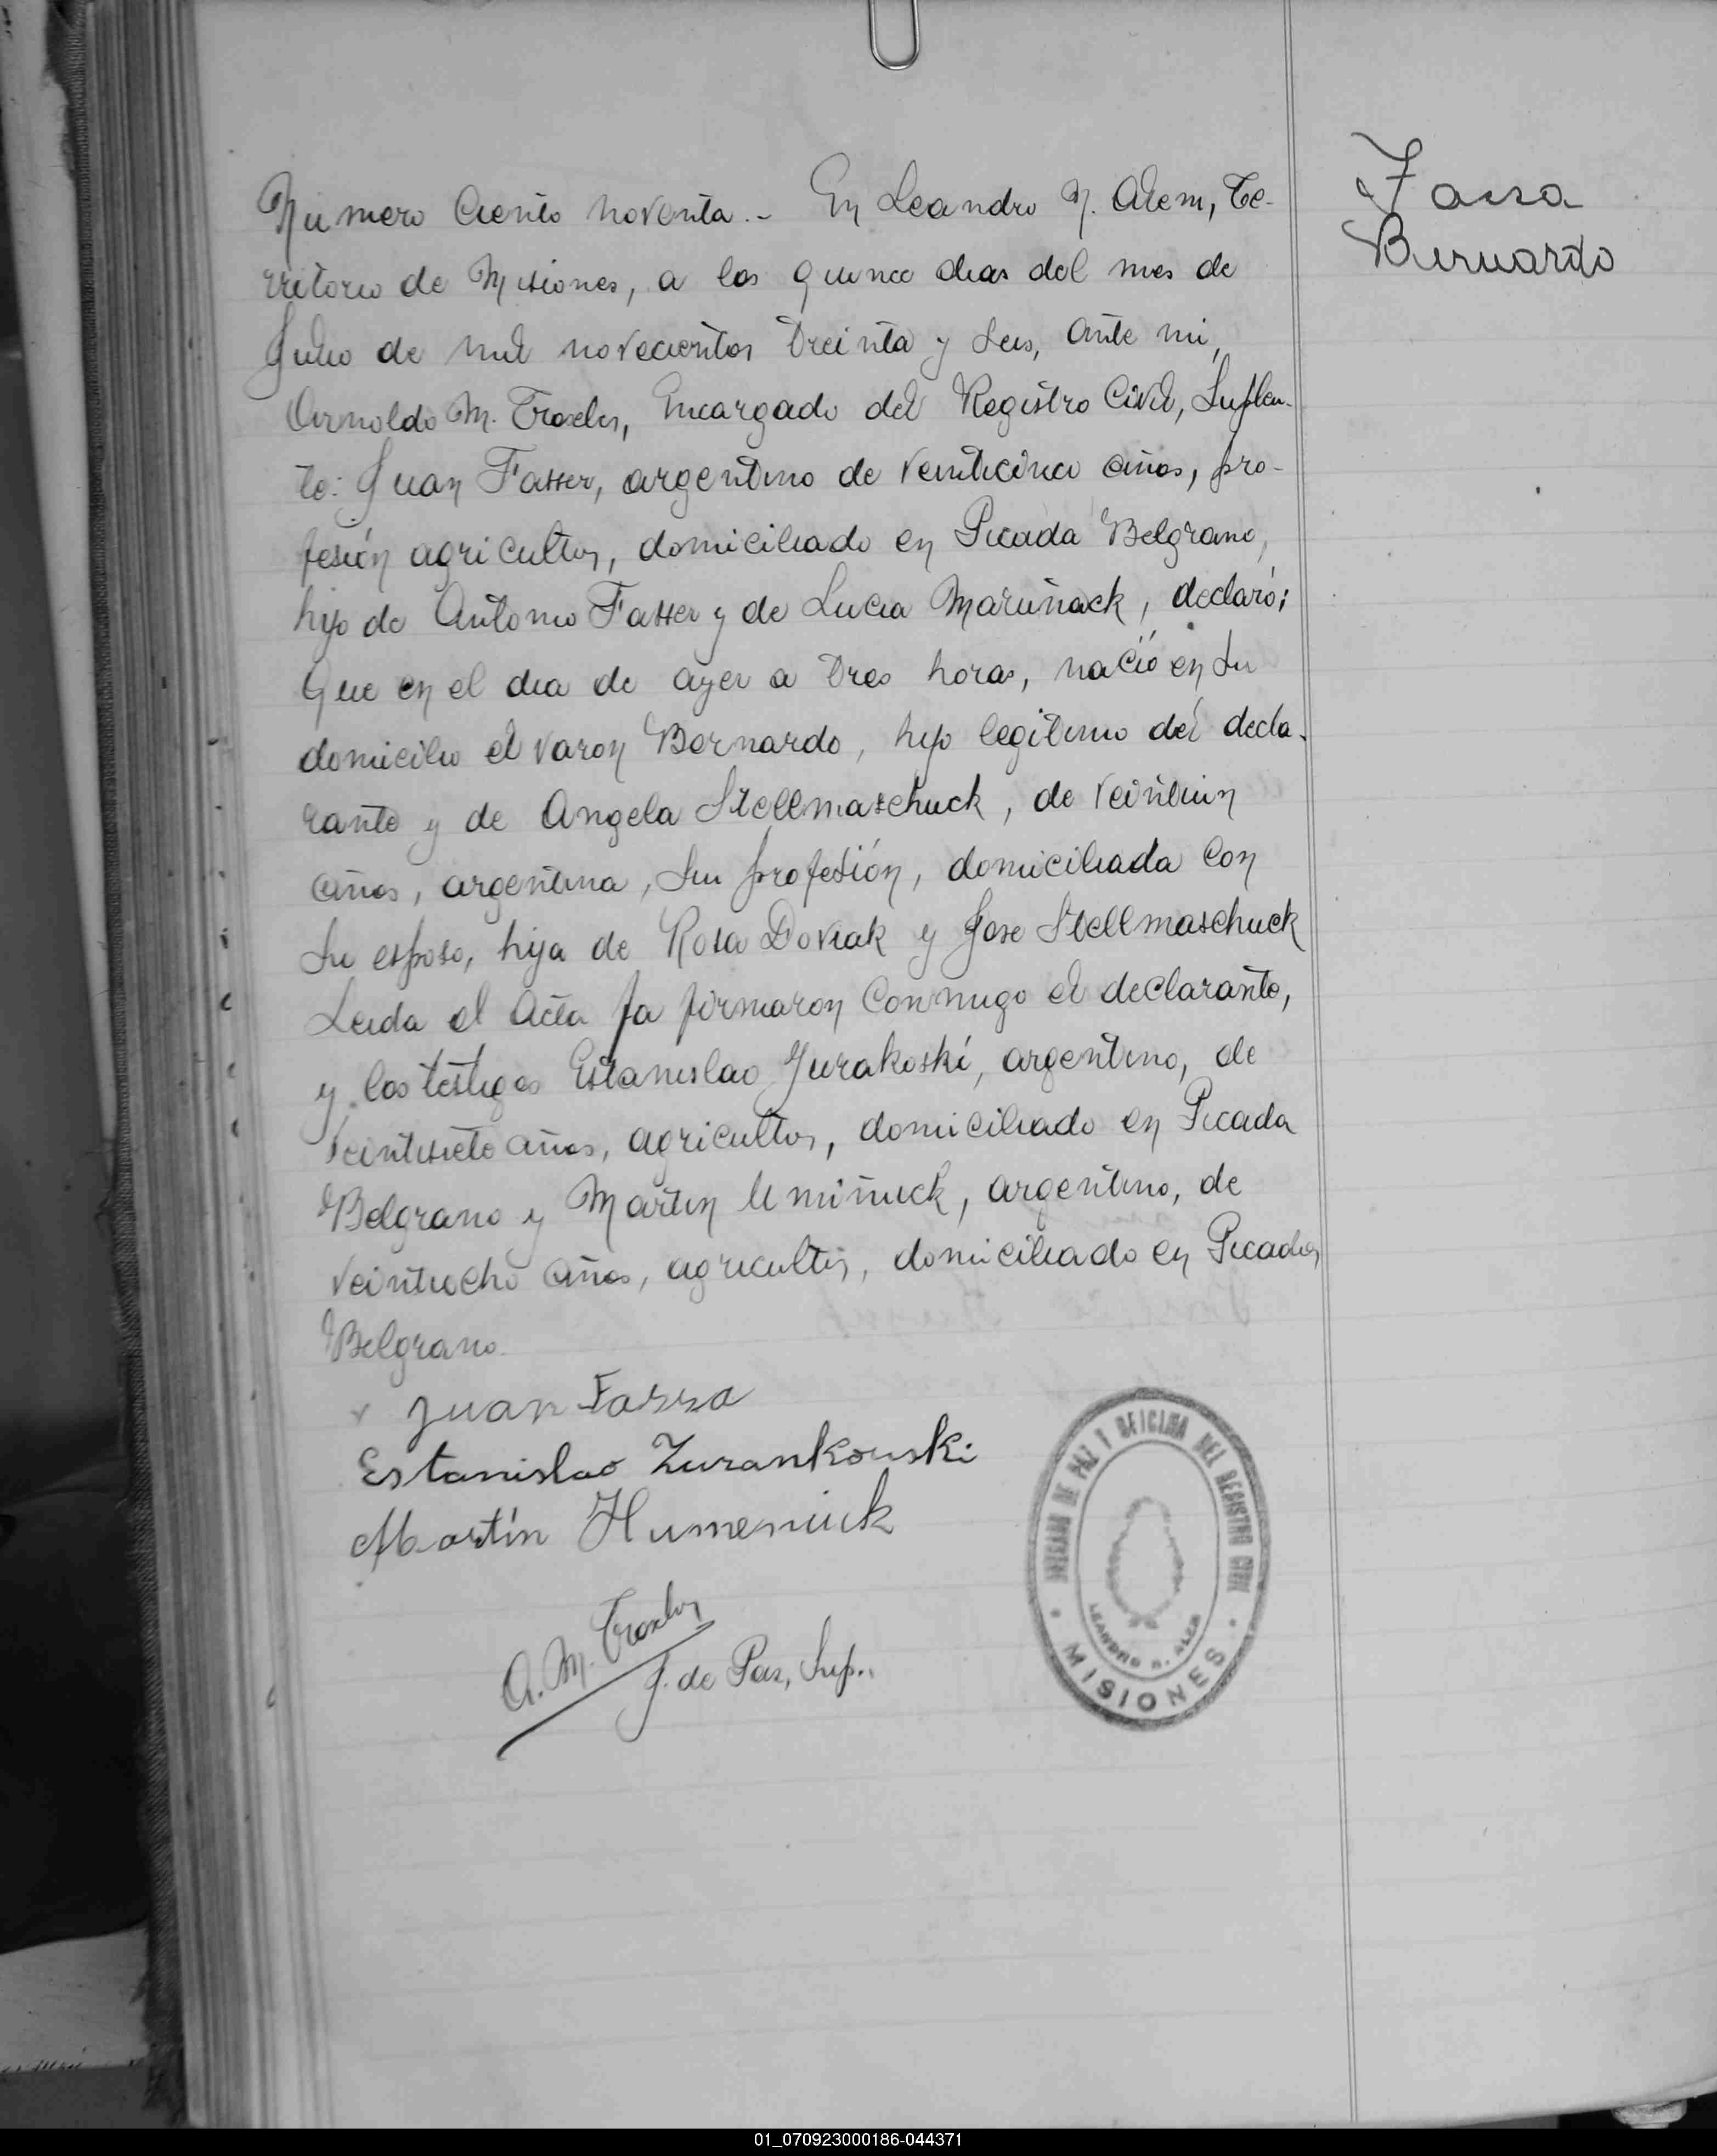 Numero Ciento noventa.- En Leandro N. Alem, Te-
rritorio de Misiones, a los quince dias del mes de
Julio de mil novecientos treinta y seis, ante mi,
Arnoldo M. Troxler, Encargado del Registro Civil, Suplen-
te: Juan Fasser, argentino de veinticinco años, pro-
fesión agricultor, domiciliado en Picada Belgrano,
hijo de Antonio Fasser y de Lucia Maruñack, declaró;
Que en el dia de ayer a tres horas, nació en su
domicilio el varon Bernardo, hijo legitimo del decla-
rante y de Angela Stellmaschuck, de veintiun
años, argentina, sin profesión, domiciliada con
su esposo, hija de Rosa Doviak y Jose Stellmaschuck
Leida el Acta la firmaron conmigo el declarante,
y los testigos Estanislao Jurakoski, argentino, de
veintisiete años, agricultor, domiciliado en Picada
Belgrano y Martin Umiñuck, argentino, de
veintiocho años, agricultor, domiciliado en Picada
Belgrano.
Juan Fassa
Estanislao Zurankouski
Martín Humeniuk
A. M. Troxler
J. de Paz, Sup..
JUZGADO DE PAZ Y OFICINA DEL REGISTRO CIVIL
LEANDRO N. ALEM
MISIONES
Fassa
Bernardo
01_070923000186-044371